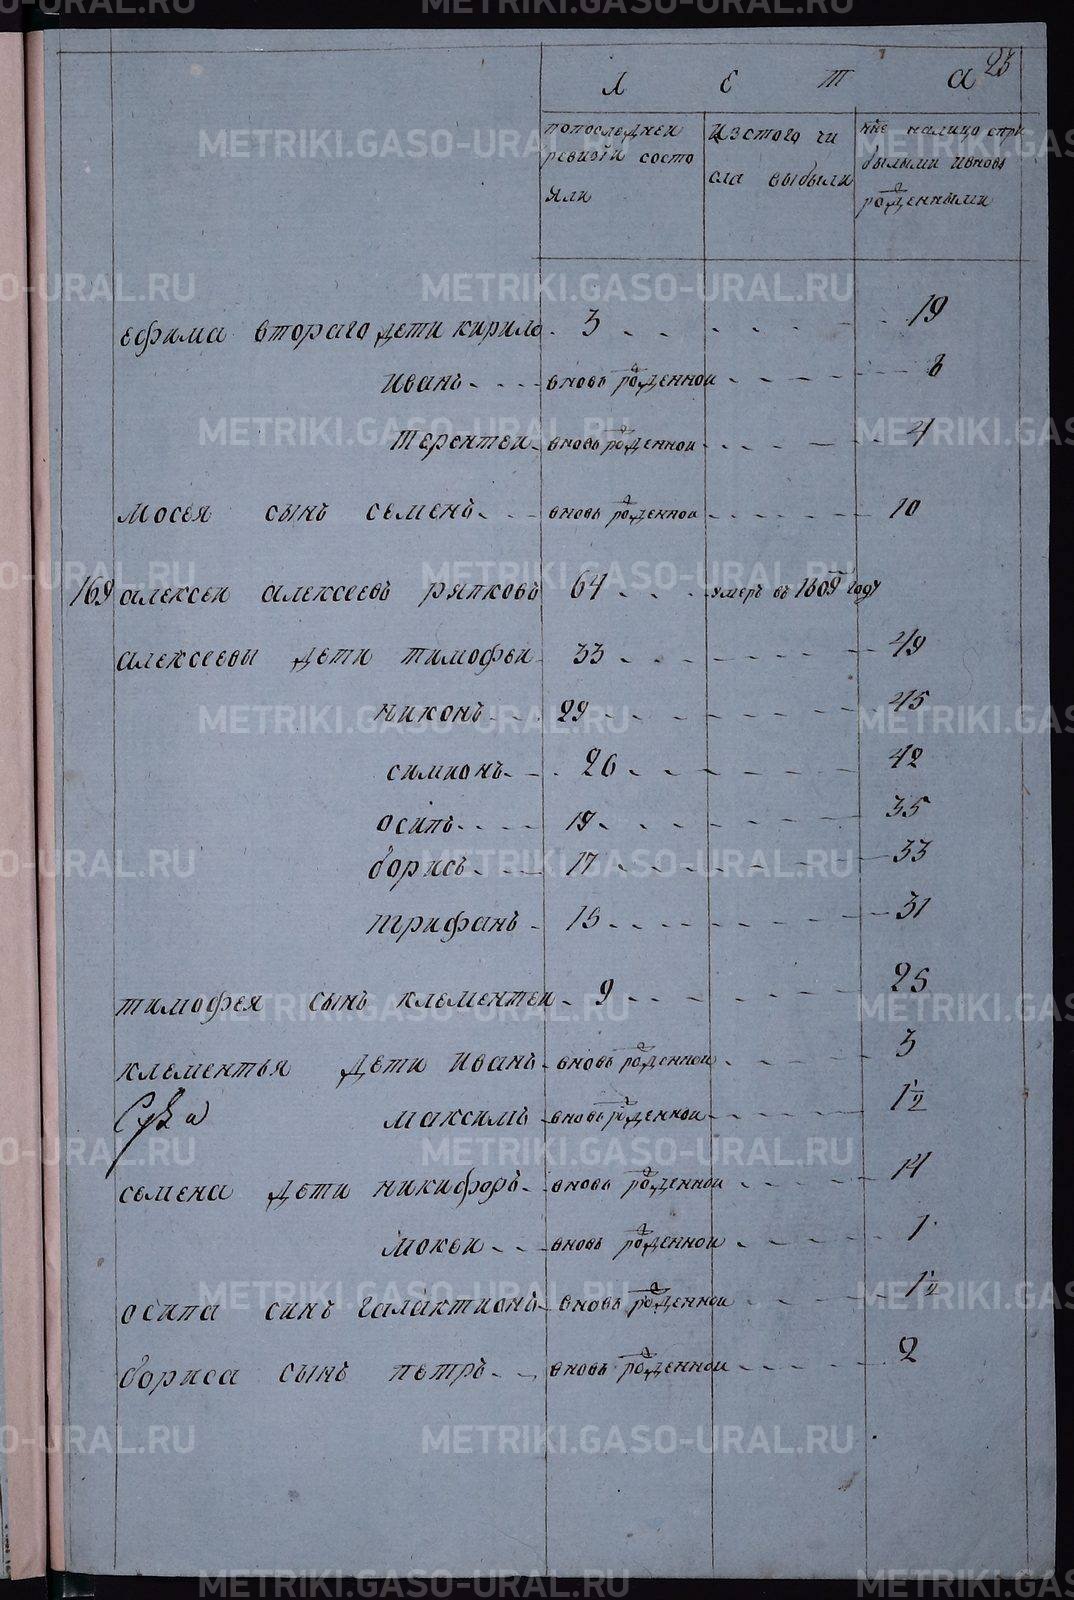 23
Л Е Т А
попоследнеи ревизги состояли
Изтого числа выбыли
нне налицо сприбылыми ивновь рожденными
ефима втораго дети кирило 3 19
иванъ вновь рожденнои 8
терентеи вновь рожденнои 4
мосея сынъ семенъ вновь рожденнои 10
169 алексеи алексеевъ ряпковъ 64 умеръ въ 1809 году
алексеевы дети тимофеи 33 49
никонъ 29 45
симионъ 26 42
осипъ 19 35
борисъ 17 33
трифанъ 15 31
тимофея сынъ клементеи 9 25
клементья дети иванъ вновь рожденнои 3
максимъ вновь рожденнои 1½
семена дети никифоръ вновь рожденнои 14
мокеи вновь рожденнои 1
осипа синъ галактионъ вновь рожденнои 1½
бориса сынъ петръ вновь рожденнои 2
METRIKI.GASO-URAL.RU